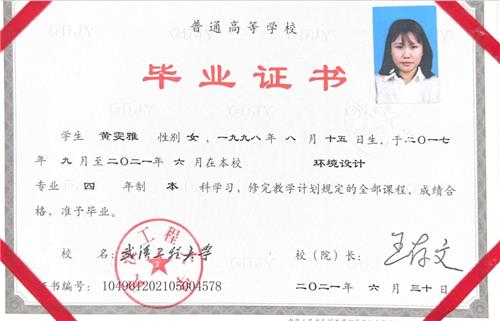 普通高等学校
毕业证书
学生 黄雯雅 性别 女，一九九八年 八 月 十五日生，于二〇一七
年 九 月至二〇二一年 六 月在本校 环境设计
专业 四 年制 本 科学习，修完教学计划规定的全部课程，成绩合
格，准予毕业。
校 名：武汉工程大学 校（院）长：王存文
证书编号：104901202105004578 二〇二一年 六 月 三十日